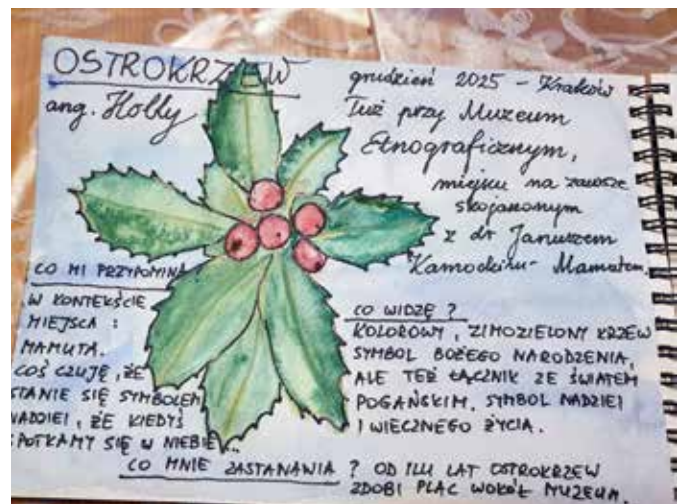 OSTROKRZEW
ang. Holly
grudzień 2025 - Kraków
Tuż przy Muzeum
Etnograficznym,
miejscu na zawsze
skojarzonym
z dr Januszem
Kamockim - Mamutem.
CO MI PRZYPOMINA
W KONTEKŚCIE
MIEJSCA :
MAMUTA.
COŚ CZUJĘ, ŻE
STANIE SIĘ SYMBOLEM
NADZIEI, ŻE KIEDYŚ
SPOTKAMY SIĘ W NIEBIE...
CO WIDZĘ ?
KOLOROWY, ZIMOZIELONY KRZEW
SYMBOL BOŻEGO NARODZENIA,
ALE TEŻ ŁĄCZNIK ZE ŚWIATEM
POGAŃSKIM, SYMBOL NADZIEI
I WIECZNEGO ŻYCIA.
CO MNIE ZASTANAWIA ? OD ILU LAT OSTROKRZEW
ZDOBI PLAC WOKÓŁ MUZEUM.